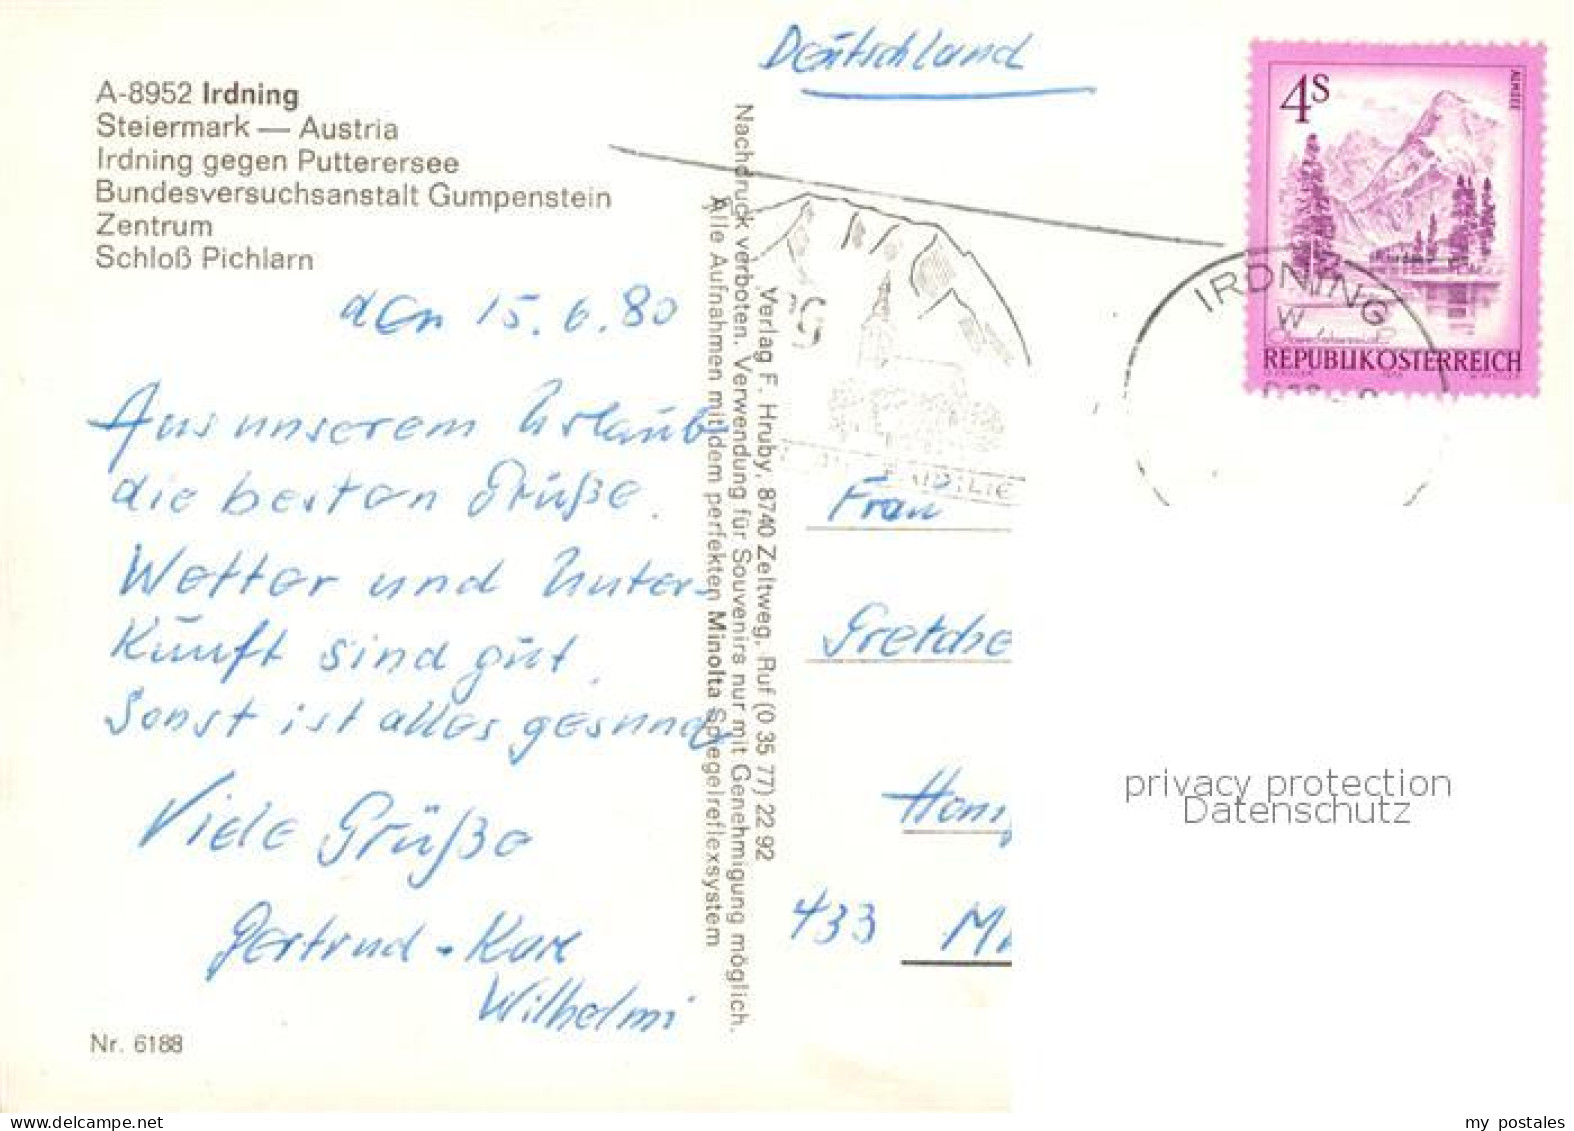 A-8952 Irdning
Steiermark — Austria
Irdning gegen Putterersee
Bundesversuchsanstalt Gumpenstein
Zentrum
Schloß Pichlarn
den 15.6.80
Aus unserem Urlaub
die besten Grüße.
Wetter und Unter-
kunft sind gut.
Sonst ist alles gesund
Viele Grüße
Gertrud - Karl
Wilhelmi
Nr. 6188
Alle Aufnahmen mit dem perfekten Minolta Spiegelreflexsystem
Nachdruck verboten. Verwendung für Souvenirs nur mit Genehmigung möglich.
Verlag F. Hruby, 8740 Zeltweg, Ruf (0 35 77) 22 92
Deutschland
4S
ALMSEE
REPUBLIK ÖSTERREICH
IRDNING
Frau
Gretche
433
privacy protection
Datenschutz
my postales
my_postales.com